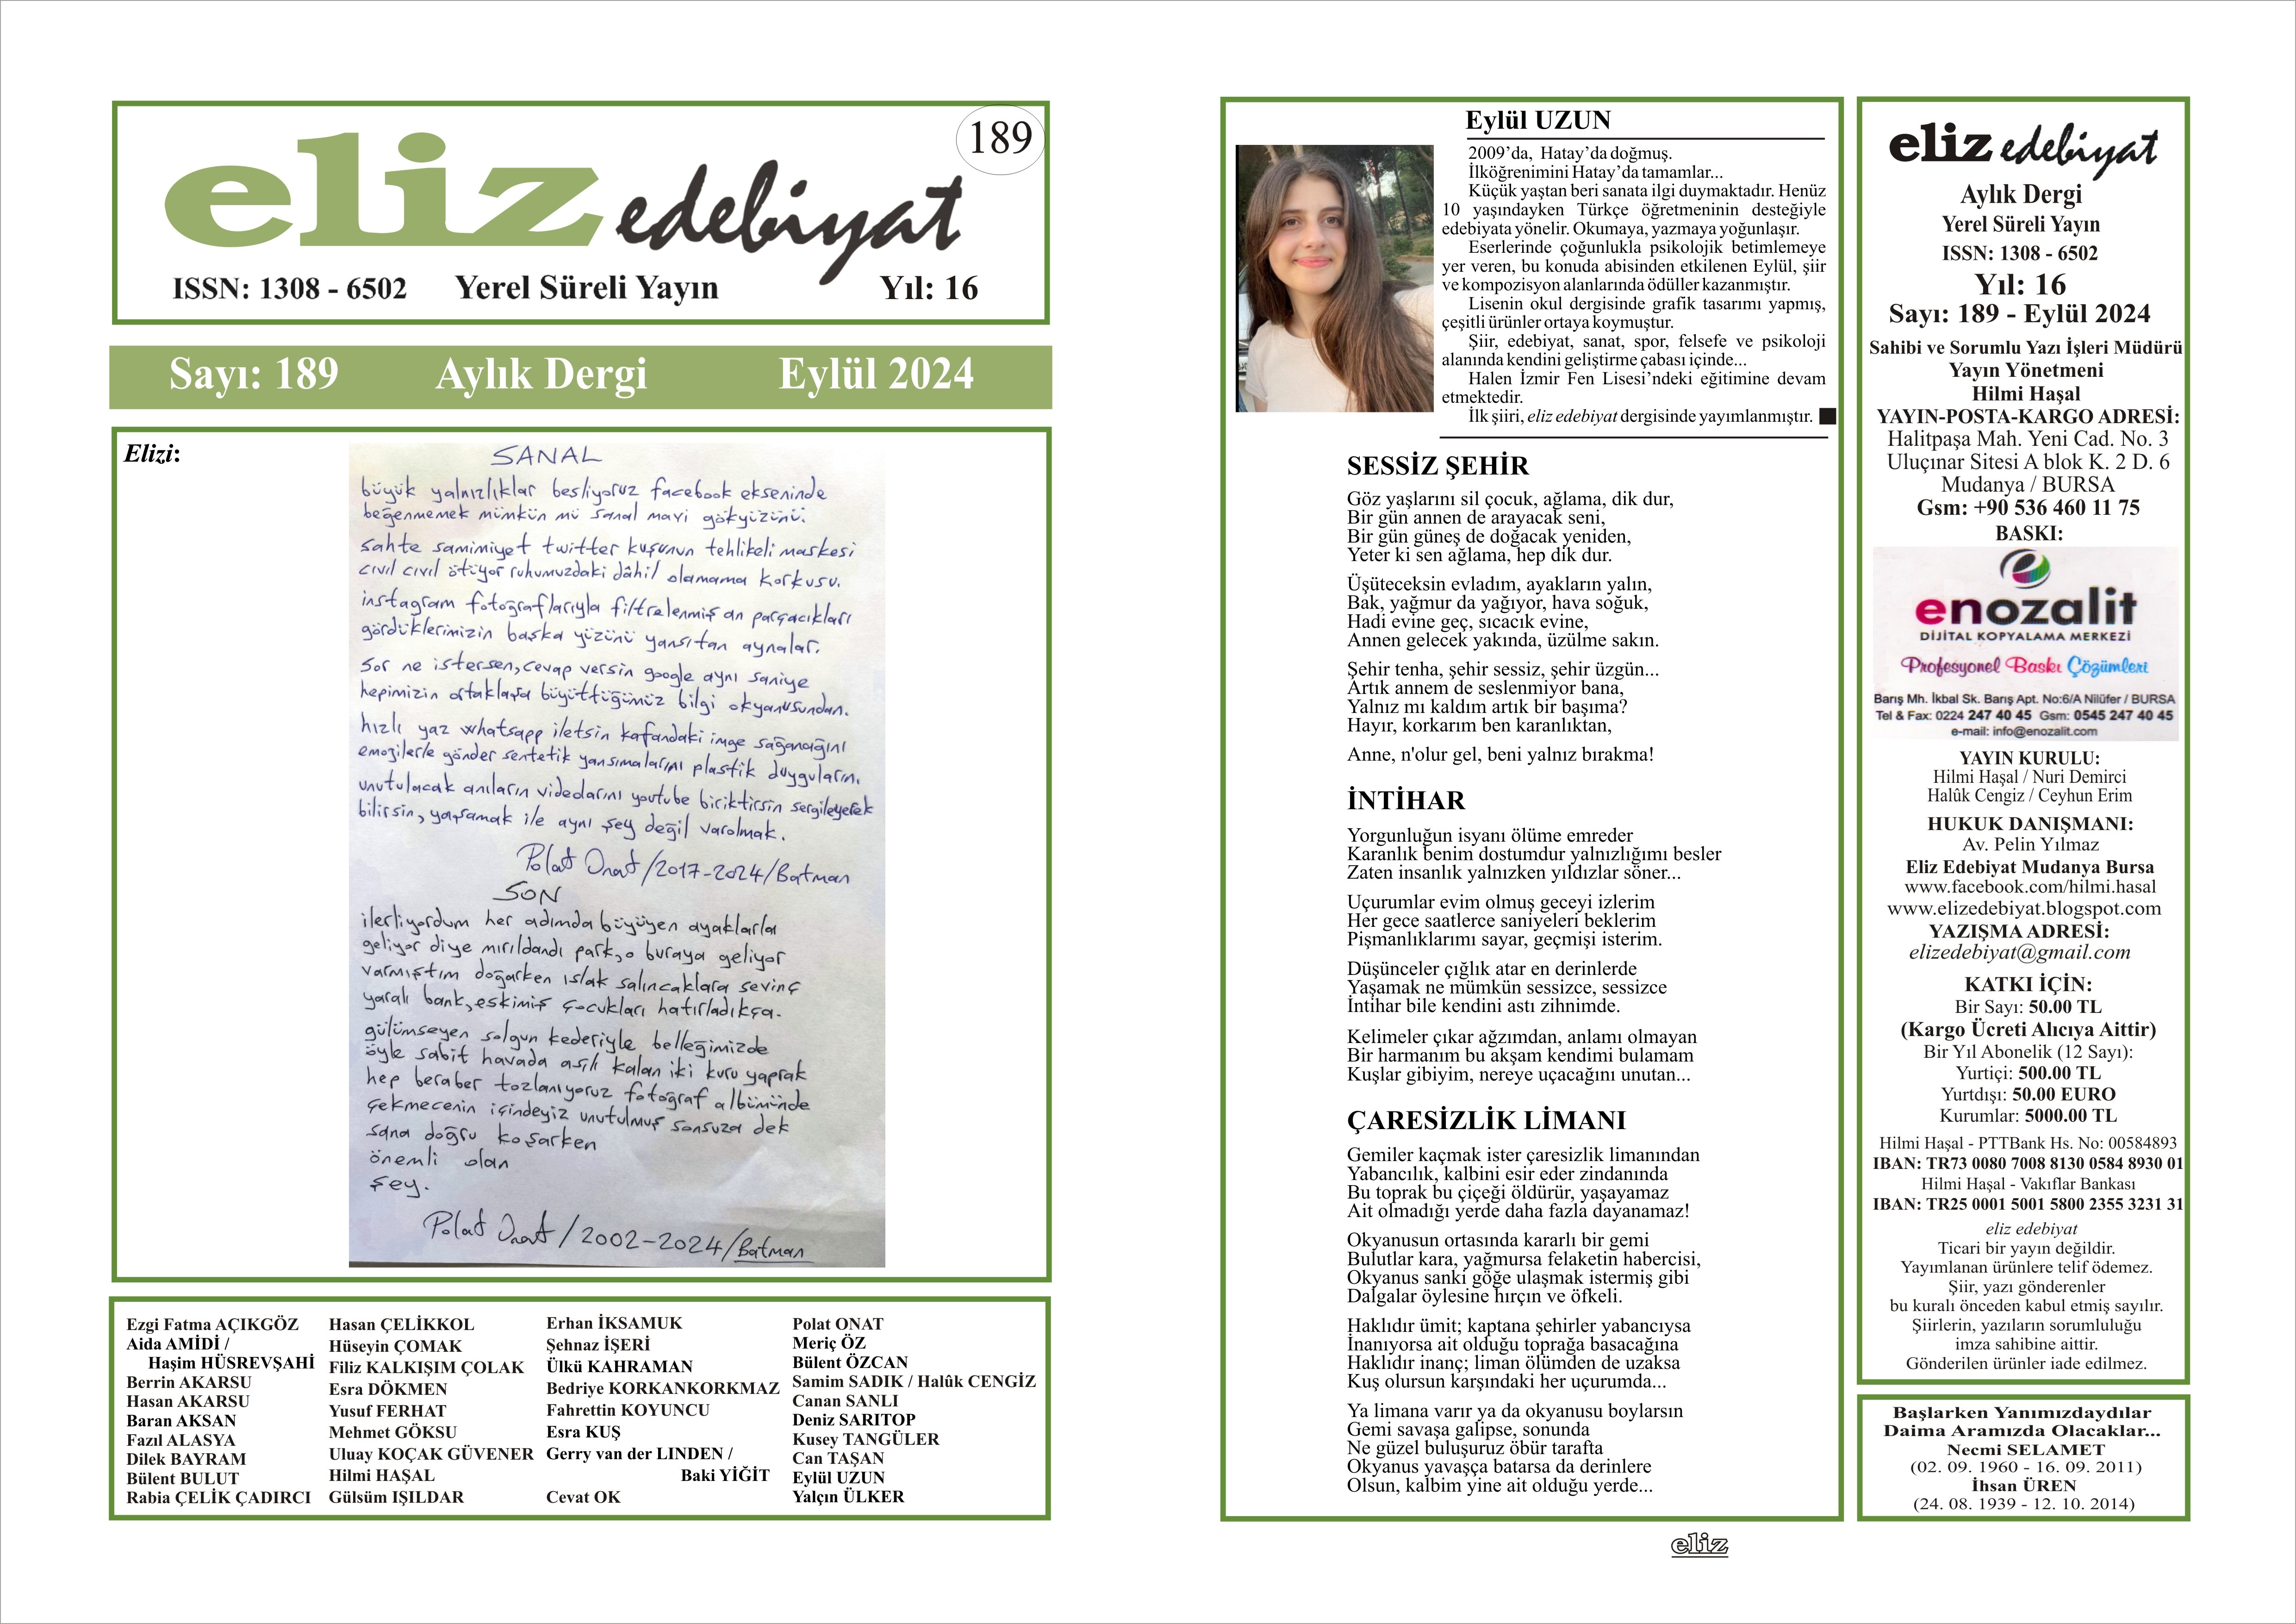 eliz edebiyat
189
ISSN: 1308 - 6502 Yerel Süreli Yayın Yıl: 16
Sayı: 189 Aylık Dergi Eylül 2024
Elizi:
SANAL
büyük yalnızlıklar besliyoruz facebook ekseninde
beğenmemek mümkün mü sanal mavi gökyüzünü.
sahte samimiyet twitter kuşunun tehlikeli maskesi
cıvıl cıvıl ötüyor ruhumuzdaki dâhil olamama korkusu.
instagram fotoğraflarıyla filtrelenmiş an parçacıkları
gördüklerimizin başka yüzünü yansıtan aynalar.
sor ne istersen, cevap versin google aynı saniye
hepimizin ortaklaşa büyüttüğümüz bilgi okyanusundan.
hızlı yaz whatsapp iletsin kafandaki imge sağanağını
emojilerle gönder sentetik yansımalarını plastik duyguların.
unutulacak anıların videolarını youtube biriktirsin sergileyerek
bilirsin, yaşamak ile aynı şey değil varolmak.
Polat Onat / 2017-2024 / Batman
SON
ilerliyordum her adımda büyüyen ayaklarla
geliyor diye mırıldandı park, o buraya geliyor
varmıştım doğarken ıslak salıncaklara sevinç
yaralı bank, eskimiş çocukları hatırladıkça.
gülümseyen solgun kederiyle belleğimizde
öyle sabit havada asılı kalan iki kuru yaprak
hep beraber tozlanıyoruz fotoğraf albümünde
çekmecenin içindeyiz unutulmuş sonsuza dek
sana doğru koşarken
önemli olan
şey.
Polat Onat / 2002-2024 / Batman
Ezgi Fatma AÇIKGÖZ
Aida AMİDİ /
Haşim HÜSREVŞAHİ
Berrin AKARSU
Hasan AKARSU
Baran AKSAN
Fazıl ALASYA
Dilek BAYRAM
Bülent BULUT
Rabia ÇELİK ÇADIRCI
Hasan ÇELİKKOL
Hüseyin ÇOMAK
Filiz KALKIŞIM ÇOLAK
Esra DÖKMEN
Yusuf FERHAT
Mehmet GÖKSU
Uluay KOÇAK GÜVENER
Hilmi HAŞAL
Gülsüm IŞILDAR
Erhan İKSAMUK
Şehnaz İŞERİ
Ülkü KAHRAMAN
Bedriye KORKANKORKMAZ
Fahrettin KOYUNCU
Esra KUŞ
Gerry van der LINDEN /
Baki YİĞİT
Cevat OK
Polat ONAT
Meriç ÖZ
Bülent ÖZCAN
Samim SADIK / Halûk CENGİZ
Canan SANLI
Deniz SARITOP
Kusey TANGÜLER
Can TAŞAN
Eylül UZUN
Yalçın ÜLKER
Eylül UZUN
2009’da, Hatay’da doğmuş.
İlköğrenimini Hatay’da tamamlar...
Küçük yaştan beri sanata ilgi duymaktadır. Henüz
10 yaşındayken Türkçe öğretmeninin desteğiyle
edebiyata yönelir. Okumaya, yazmaya yoğunlaşır.
Eserlerinde çoğunlukla psikolojik betimlemeye
yer veren, bu konuda abisinden etkilenen Eylül, şiir
ve kompozisyon alanlarında ödüller kazanmıştır.
Lisenin okul dergisinde grafik tasarımı yapmış,
çeşitli ürünler ortaya koymuştur.
Şiir, edebiyat, sanat, spor, felsefe ve psikoloji
alanında kendini geliştirme çabası içinde...
Halen İzmir Fen Lisesi’ndeki eğitimine devam
etmektedir.
İlk şiiri, eliz edebiyat dergisinde yayımlanmıştır.
SESSİZ ŞEHİR
Göz yaşlarını sil çocuk, ağlama, dik dur,
Bir gün annen de arayacak seni,
Bir gün güneş de doğacak yeniden,
Yeter ki sen ağlama, hep dik dur.
Üşüteceksin evladım, ayakların yalın,
Bak, yağmur da yağıyor, hava soğuk,
Hadi evine geç, sıcacık evine,
Annen gelecek yakında, üzülme sakın.
Şehir tenha, şehir sessiz, şehir üzgün...
Artık annem de seslenmiyor bana,
Yalnız mı kaldım artık bir başıma?
Hayır, korkarım ben karanlıktan,
Anne, n'olur gel, beni yalnız bırakma!
İNTİHAR
Yorgunluğun isyanı ölüme emreder
Karanlık benim dostumdur yalnızlığımı besler
Zaten insanlık yalnızken yıldızlar söner...
Uçurumlar evim olmuş geceyi izlerim
Her gece saatlerce saniyeleri beklerim
Pişmanlıklarımı sayar, geçmişi isterim.
Düşünceler çığlık atar en derinlerde
Yaşamak ne mümkün sessizce, sessizce
İntihar bile kendini astı zihnimde.
Kelimeler çıkar ağzımdan, anlamı olmayan
Bir harmanım bu akşam kendimi bulamam
Kuşlar gibiyim, nereye uçacağını unutan...
ÇARESİZLİK LİMANI
Gemiler kaçmak ister çaresizlik limanından
Yabancılık, kalbini esir eder zindanında
Bu toprak bu çiçeği öldürür, yaşayamaz
Ait olmadığı yerde daha fazla dayanamaz!
Okyanusun ortasında kararlı bir gemi
Bulutlar kara, yağmursa felaketin habercisi,
Okyanus sanki göğe ulaşmak istermiş gibi
Dalgalar öylesine hırçın ve öfkeli.
Haklıdır ümit; kaptana şehirler yabancıysa
İnanıyorsa ait olduğu toprağa basacağına
Haklıdır inanç; liman ölümden de uzaksa
Kuş olursun karşındaki her uçurumda...
Ya limana varır ya da okyanusu boylarsın
Gemi savaşa galipse, sonunda
Ne güzel buluşuruz öbür tarafta
Okyanus yavaşça batarsa da derinlere
Olsun, kalbim yine ait olduğu yerde...
eliz
eliz edebiyat
Aylık Dergi
Yerel Süreli Yayın
ISSN: 1308 - 6502
Yıl: 16
Sayı: 189 - Eylül 2024
Sahibi ve Sorumlu Yazı İşleri Müdürü
Yayın Yönetmeni
Hilmi Haşal
YAYIN-POSTA-KARGO ADRESİ:
Halitpaşa Mah. Yeni Cad. No. 3
Uluçınar Sitesi A blok K. 2 D. 6
Mudanya / BURSA
Gsm: +90 536 460 11 75
BASKI:
enozalit
DİJİTAL KOPYALAMA MERKEZİ
Profesyonel Baskı Çözümleri
Barış Mh. İkbal Sk. Barış Apt. No:6/A Nilüfer / BURSA
Tel & Fax: 0224 247 40 45 Gsm: 0545 247 40 45
e-mail: info@enozalit.com
YAYIN KURULU:
Hilmi Haşal / Nuri Demirci
Halûk Cengiz / Ceyhun Erim
HUKUK DANIŞMANI:
Av. Pelin Yılmaz
Eliz Edebiyat Mudanya Bursa
www.facebook.com/hilmi.hasal
www.elizedebiyat.blogspot.com
YAZIŞMA ADRESİ:
elizedebiyat@gmail.com
KATKI İÇİN:
Bir Sayı: 50.00 TL
(Kargo Ücreti Alıcıya Aittir)
Bir Yıl Abonelik (12 Sayı):
Yurtiçi: 500.00 TL
Yurtdışı: 50.00 EURO
Kurumlar: 5000.00 TL
Hilmi Haşal - PTTBank Hs. No: 00584893
IBAN: TR73 0080 7008 8130 0584 8930 01
Hilmi Haşal - Vakıflar Bankası
IBAN: TR25 0001 5001 5800 2355 3231 31
eliz edebiyat
Ticari bir yayın değildir.
Yayımlanan ürünlere telif ödemez.
Şiir, yazı gönderenler
bu kuralı önceden kabul etmiş sayılır.
Şiirlerin, yazıların sorumluluğu
imza sahibine aittir.
Gönderilen ürünler iade edilmez.
Başlarken Yanımızdaydılar
Daima Aramızda Olacaklar...
Necmi SELAMET
(02. 09. 1960 - 16. 09. 2011)
İhsan ÜREN
(24. 08. 1939 - 12. 10. 2014)